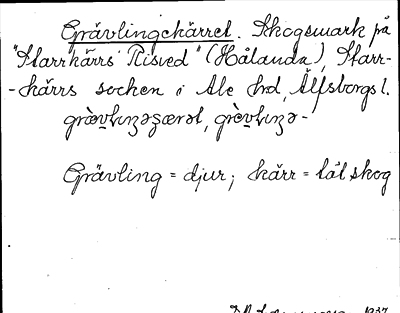 Grävlingekärret. Skogsmark på
"Starrkärrs Risved" (Hålanda), Starr-
-kärrs socken i Ale hd, Älfsborgs l.
Grävling = djur; kärr = låt skog
1937